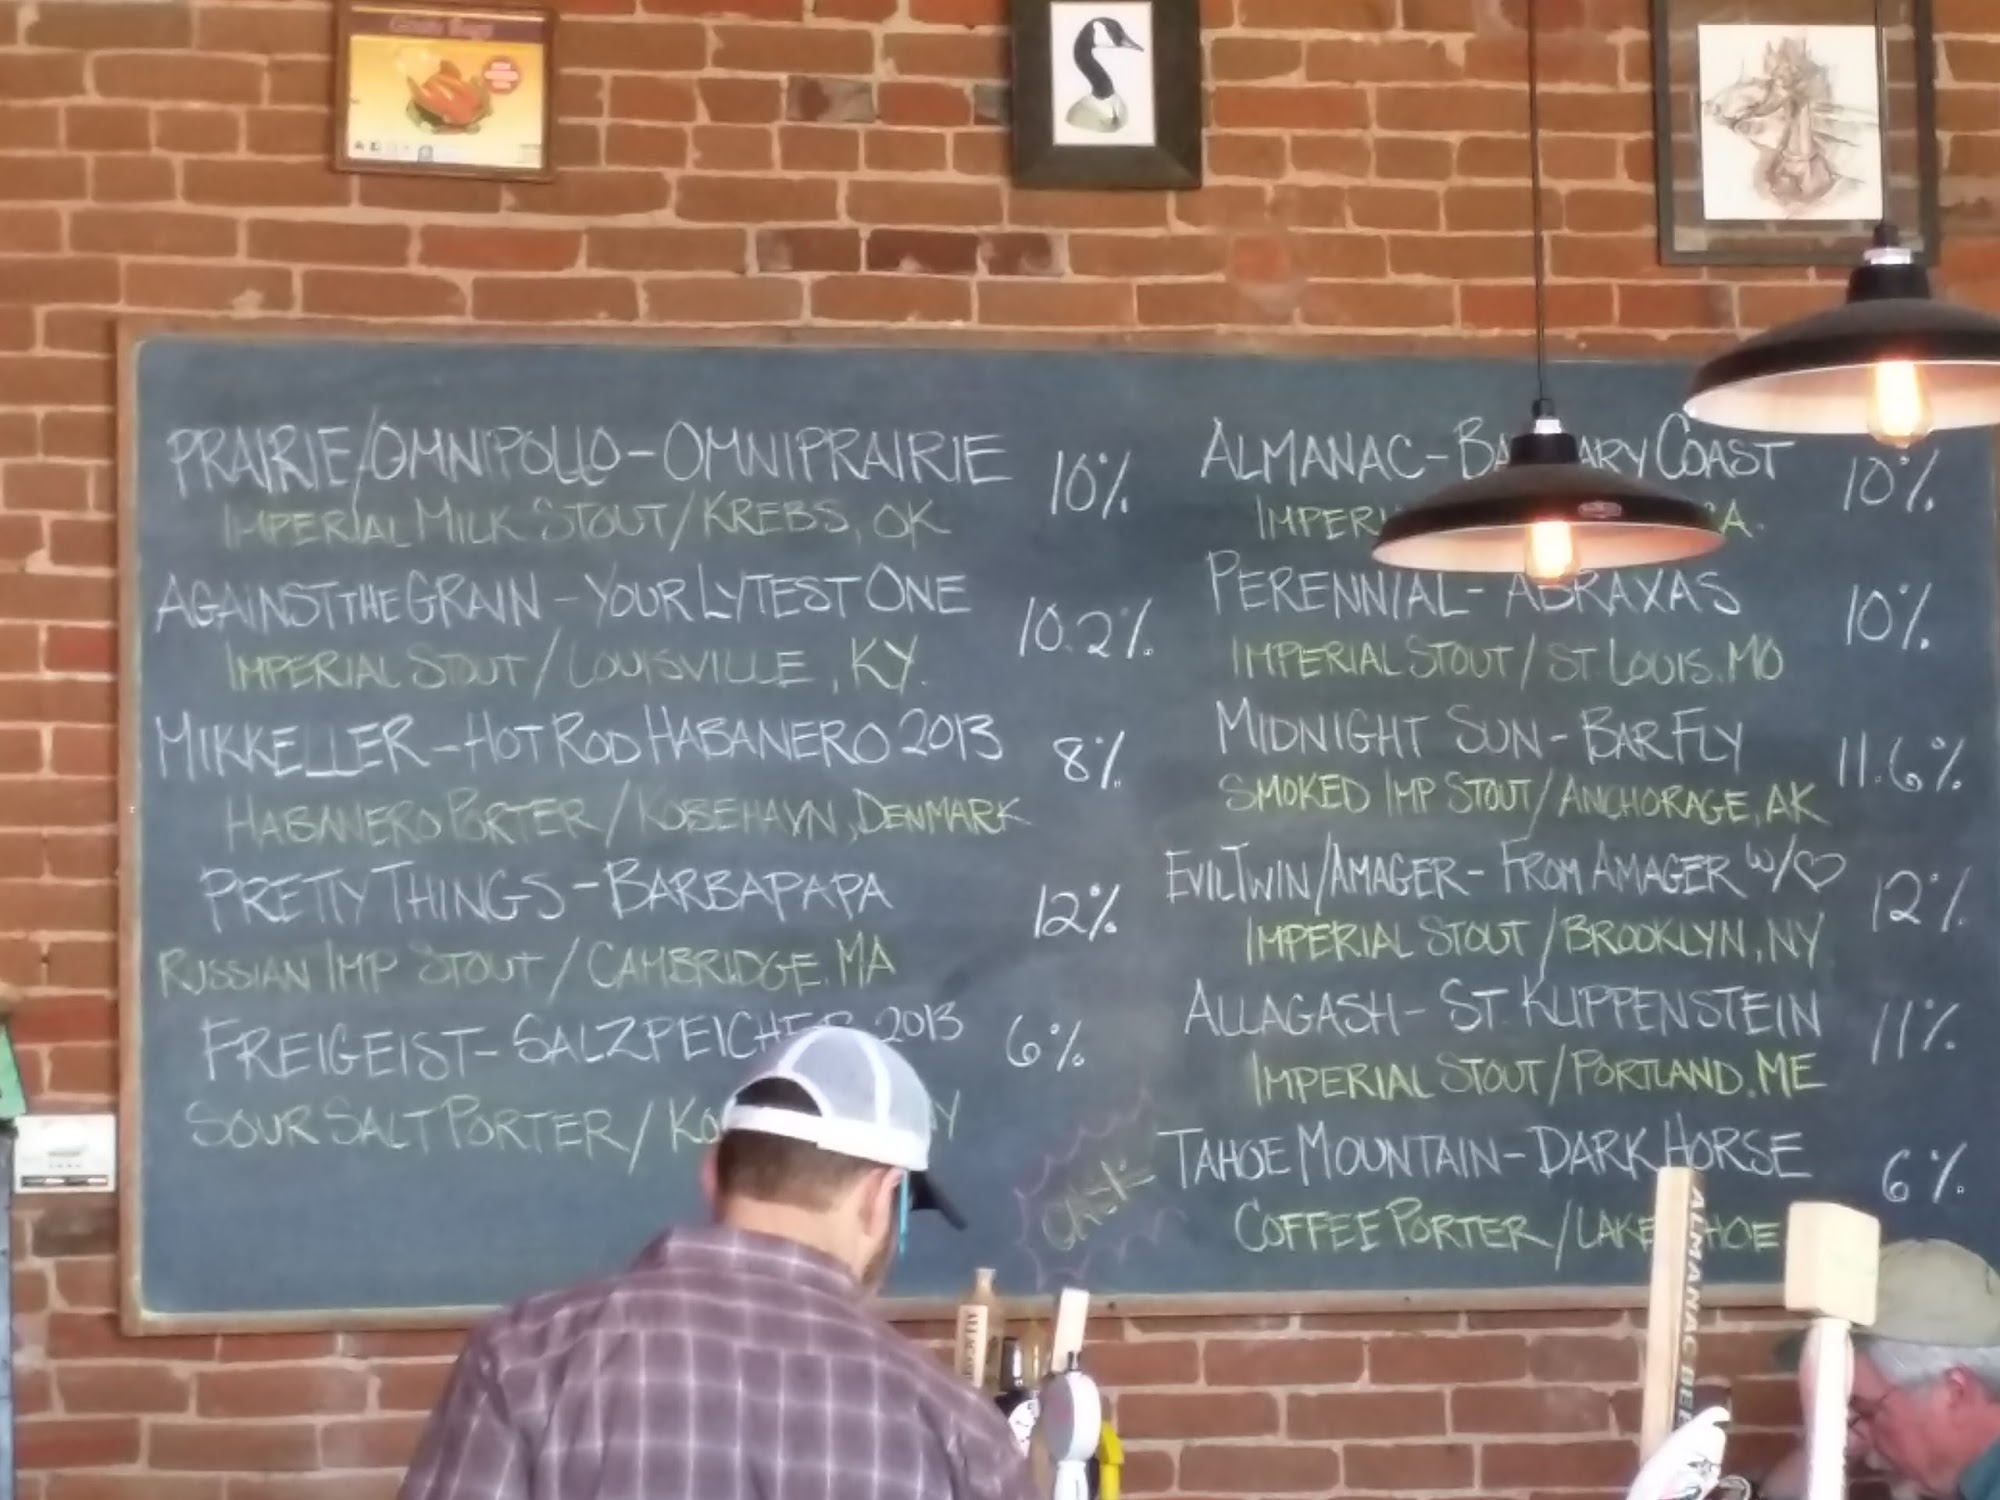 PRAIRIE/OMNIPOLLO - OMNIPRAIRIE 10%
IMPERIAL MILK STOUT/KREBS, OK
AGAINST THE GRAIN - YOUR LYTEST ONE 10.2%
IMPERIAL STOUT/LOUISVILLE, KY.
MIKKELLER - HOT ROD HABANERO 2013 8%
HABANERO PORTER/KOBEHAVN, DENMARK
PRETTY THINGS - BARBAPAPA 12%
RUSSIAN IMP STOUT/CAMBRIDGE. MA
FREIGEIST - SALZPEICHER 2013 6%
SOUR SALT PORTER/
ALMANAC - COAST 10%
PERENNIAL - ABRAXAS 10%
IMPERIAL STOUT/ST LOUIS. MO
MIDNIGHT SUN - BAR FLY 11.6%
SMOKED IMP STOUT/ANCHORAGE, AK
EVIL TWIN/AMAGER - FROM AMAGER W/♡ 12%
IMPERIAL STOUT/BROOKLYN, NY
ALLAGASH - ST. KLIPPENSTEIN 11%
IMPERIAL STOUT/PORTLAND. ME
CASK TAHOE MOUNTAIN - DARK HORSE 6%
COFFEE PORTER/LAKE
ALMANAC BEER